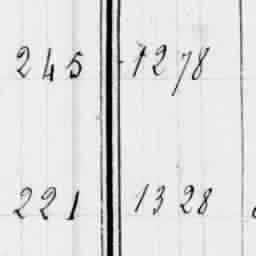 245 1278
221 1328